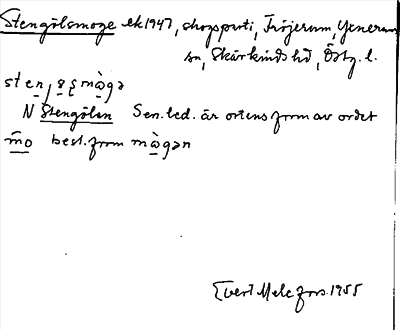 Stengölsmoge ek 1947, skogsparti, Fröjerum, Yxnerum
sn, Skärkinds hd, Östg. l.
N Stengölen Sen. led. är ortens form av ordet
mo best. form mògən
Evert Melefors 1955